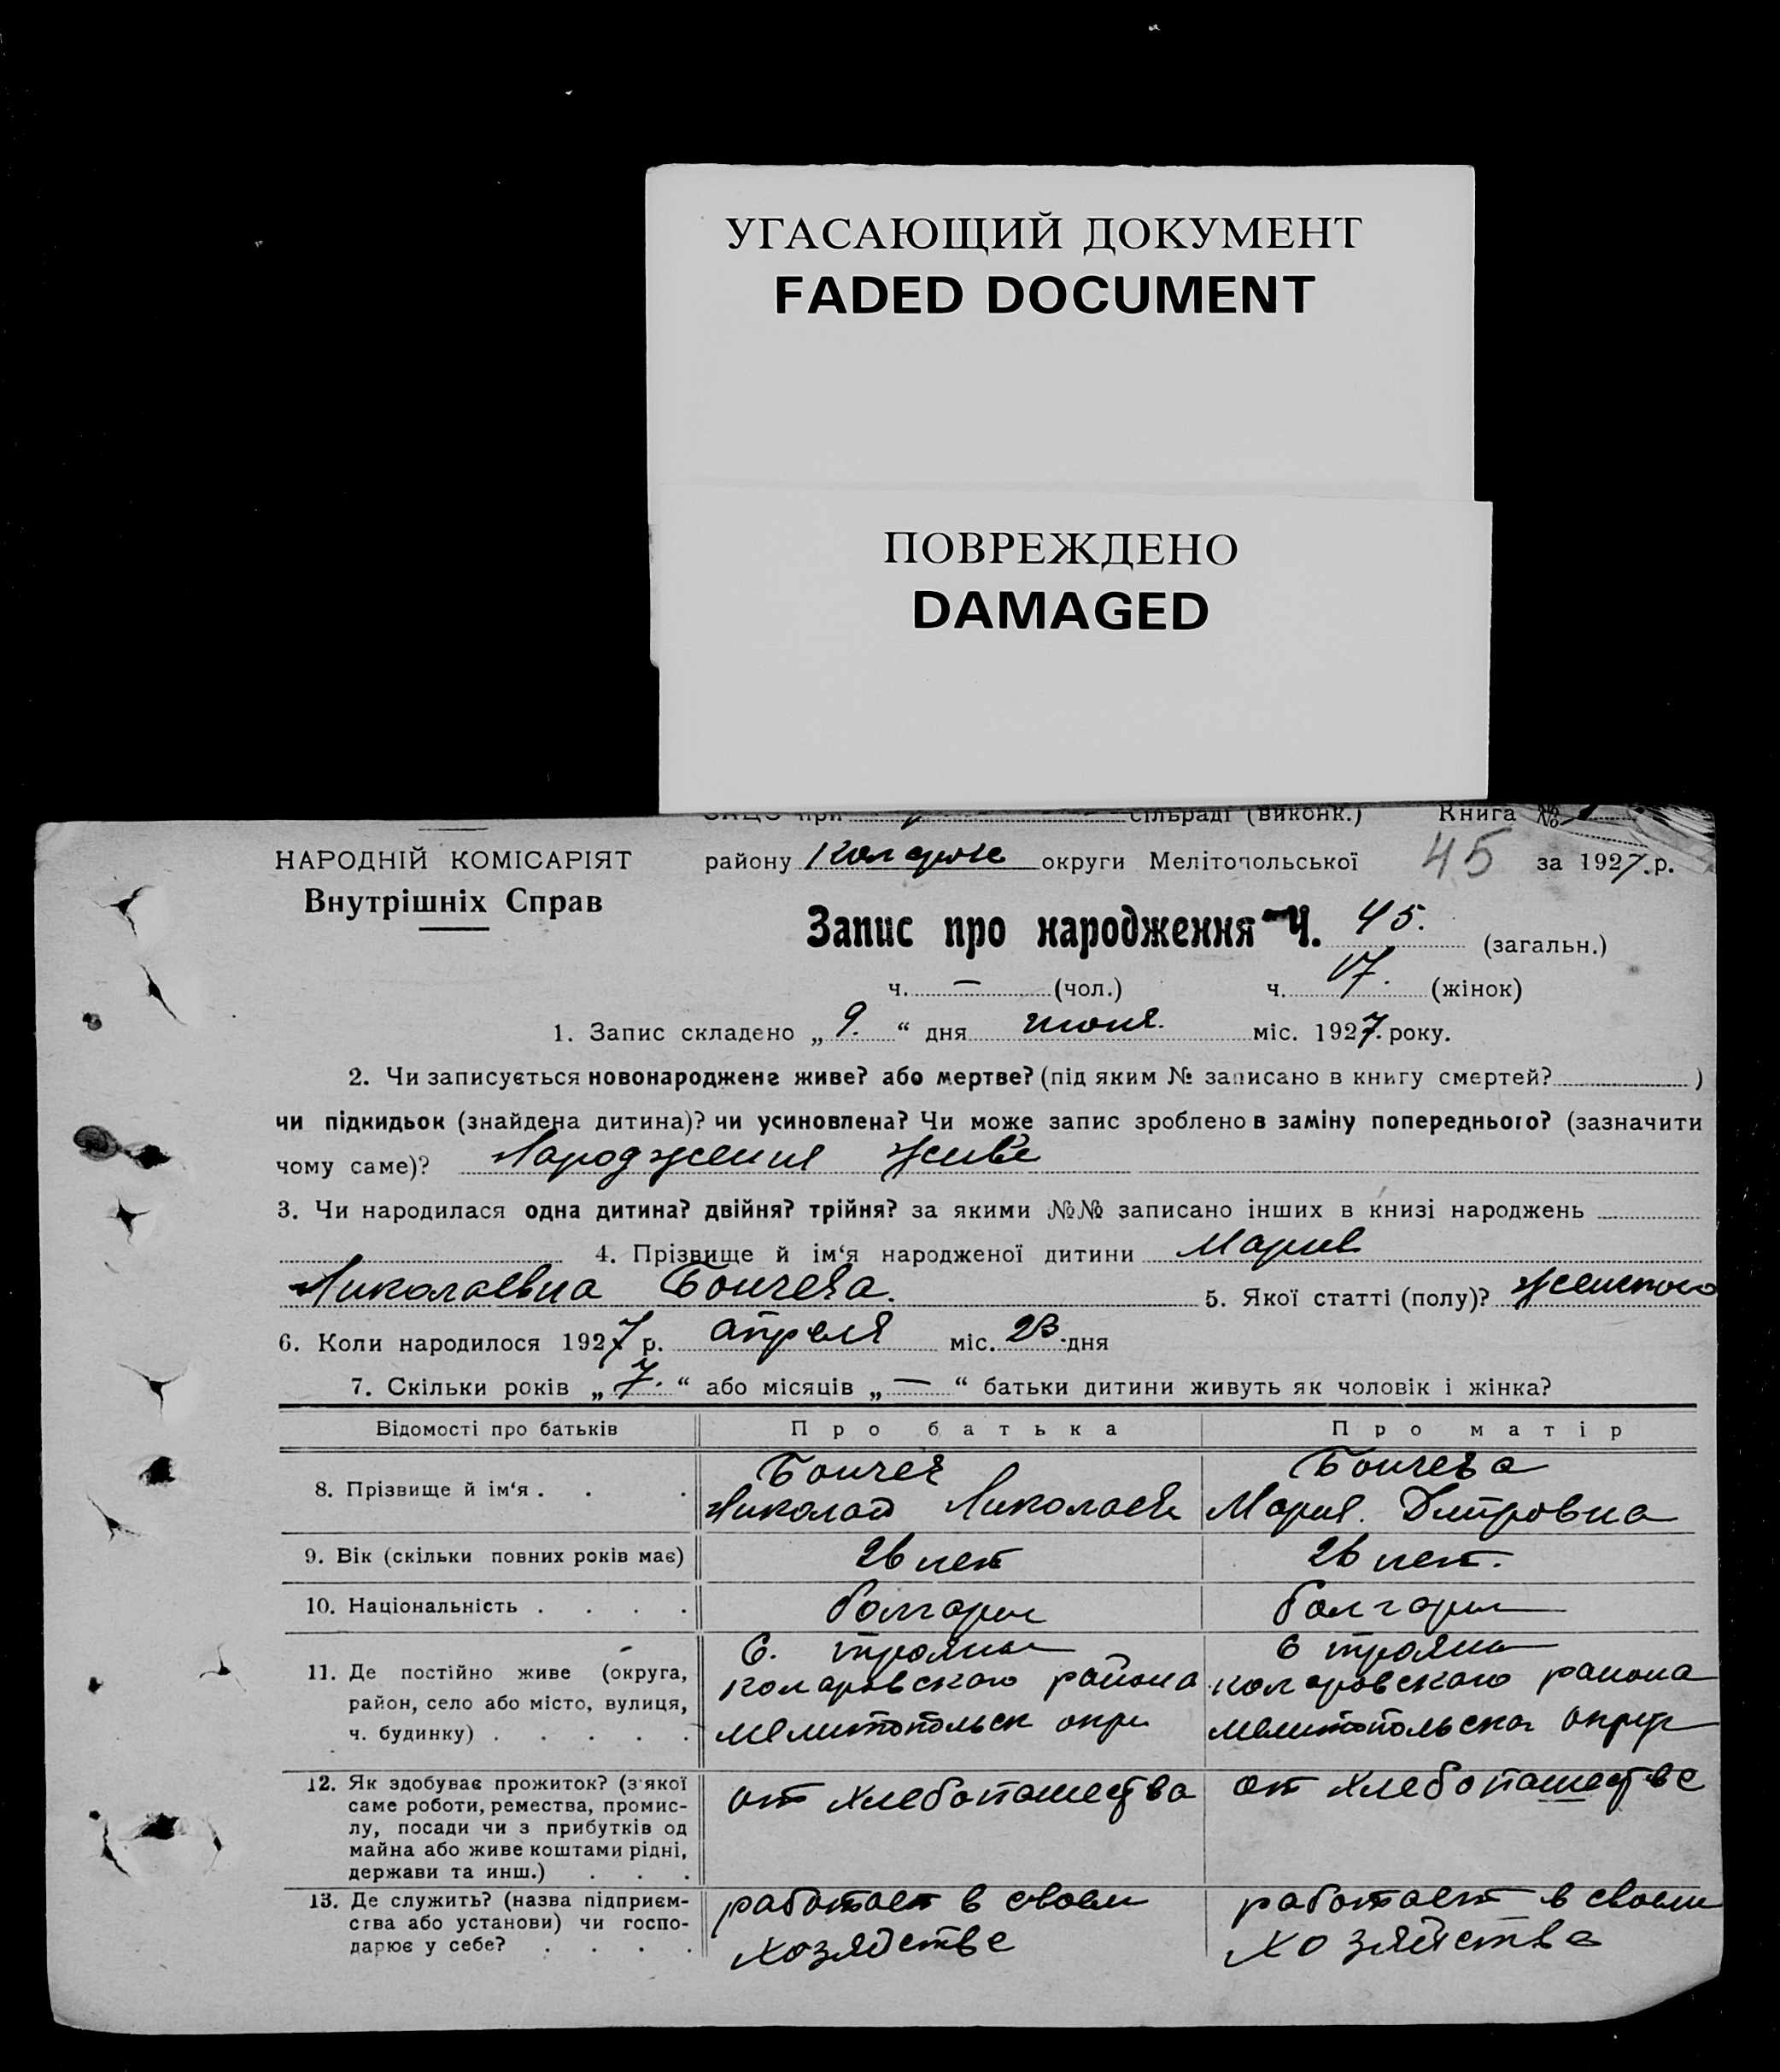 УГАСАЮЩИЙ ДОКУМЕНТ
FADED DOCUMENT
ПОВРЕЖДЕНО
DAMAGED
ЗАЦС при сільраді (виконк.) Книга №
НАРОДНІЙ КОМІСАРІЯТ
Внутрішніх Справ
району Коларов округи Мелітопольської 45 за 1927.р.
Запис про народження Ч. 45. (загальн.)
ч. — (чол.) ч. 17. (жінок)
1. Запис складено „ 9. “ дня июня. міс. 1927. року.
2. Чи записується новонароджене живе? або мертве? (під яким № записано в книгу смертей? )
чи підкидьок (знайдена дитина)? чи усиновлена? Чи може запис зроблено в заміну попереднього? (зазначити
чому саме)? Народження живе
3. Чи народилася одна дитина? двійня? трійня? за якими №№ записано інших в книзі народжень
4. Прізвище й ім‘я народженої дитини Мария
Николаевна Бончева. 5. Якої статті (полу)? женского
6. Коли народилося 1927 р. апреля міс. 23. дня
7. Скільки років „ 7. “ або місяців „ — “ батьки дитини живуть як чоловік і жінка?
Відомості про батьків Про батька Про матір
8. Прізвище й ім‘я . . .
Бончев Бончева
Николай Николаев Мария. Дмитровна
9. Вік (скільки повних років має) 26 лет 26 лет.
10. Національність . . . . болгарин болгарин
11. Де постійно живе (округа,
район, село або місто, вулиця,
ч. будинку) . . . . .
С. трояны С трояны
коларовского района коларовского района
мелитопольск окру мелитопольской округ
12. Як здобуває прожиток? (з якої
саме роботи, ремества, промис-
лу, посади чи з прибутків од
майна або живе коштами рідні,
держави та инш.) . . .
от хлебопашества от хлебопашества
13. Де служить? (назва підприєм-
ства або установи) чи госпо-
дарює у себе? . . . .
работает в своем работает в своем
хозяйстве хозяйстве